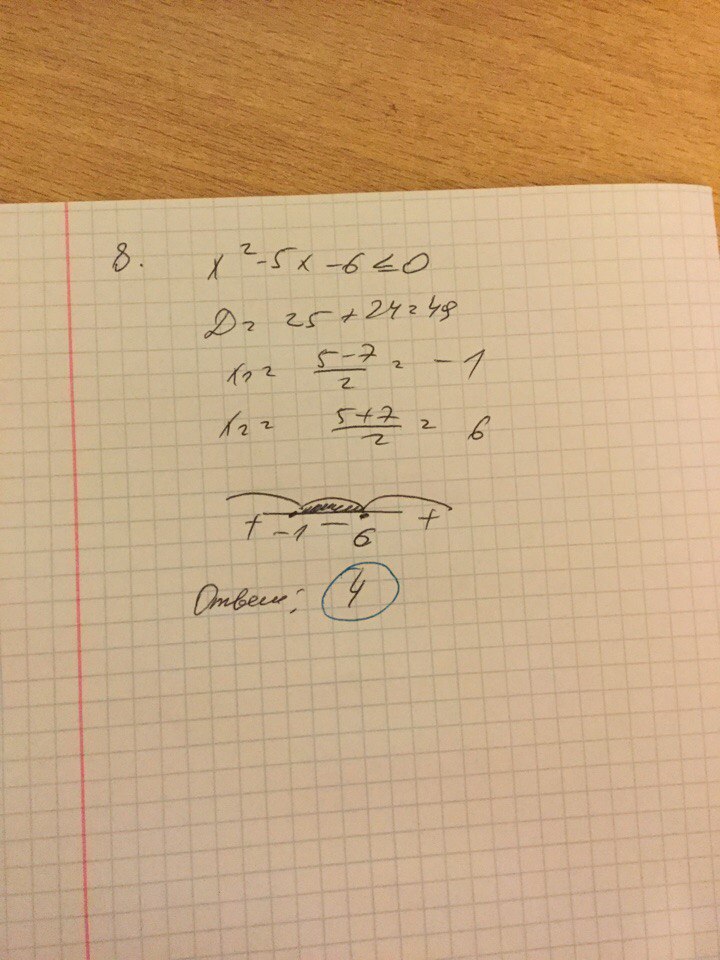 8. x²-5x-6≤0
D= 25+24=49
x₁= (5-7)/2 = -1
x₂= (5+7)/2 = 6
+ -1 - 6 +
Ответ: 4